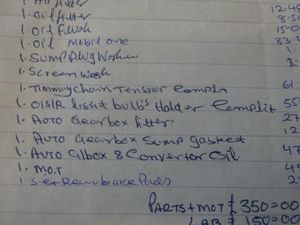 1. Oil filter
1. Oil Flush
1. Oil Mobil one
1. Sump plug washer
1. Screen Wash
1. Timmy chain Tensior Complit
1. O/S/R light bulb's Holder Complit 55
1. Auto Gearbox filter 27
1. Auto Gearbox Sump gasket 12
1. Auto G/box & Convertor Oil 47
1. M.O.T
1. Set Rear brake Pads 27
PARTS + MOT £ 350=00
LAB £ 150=00